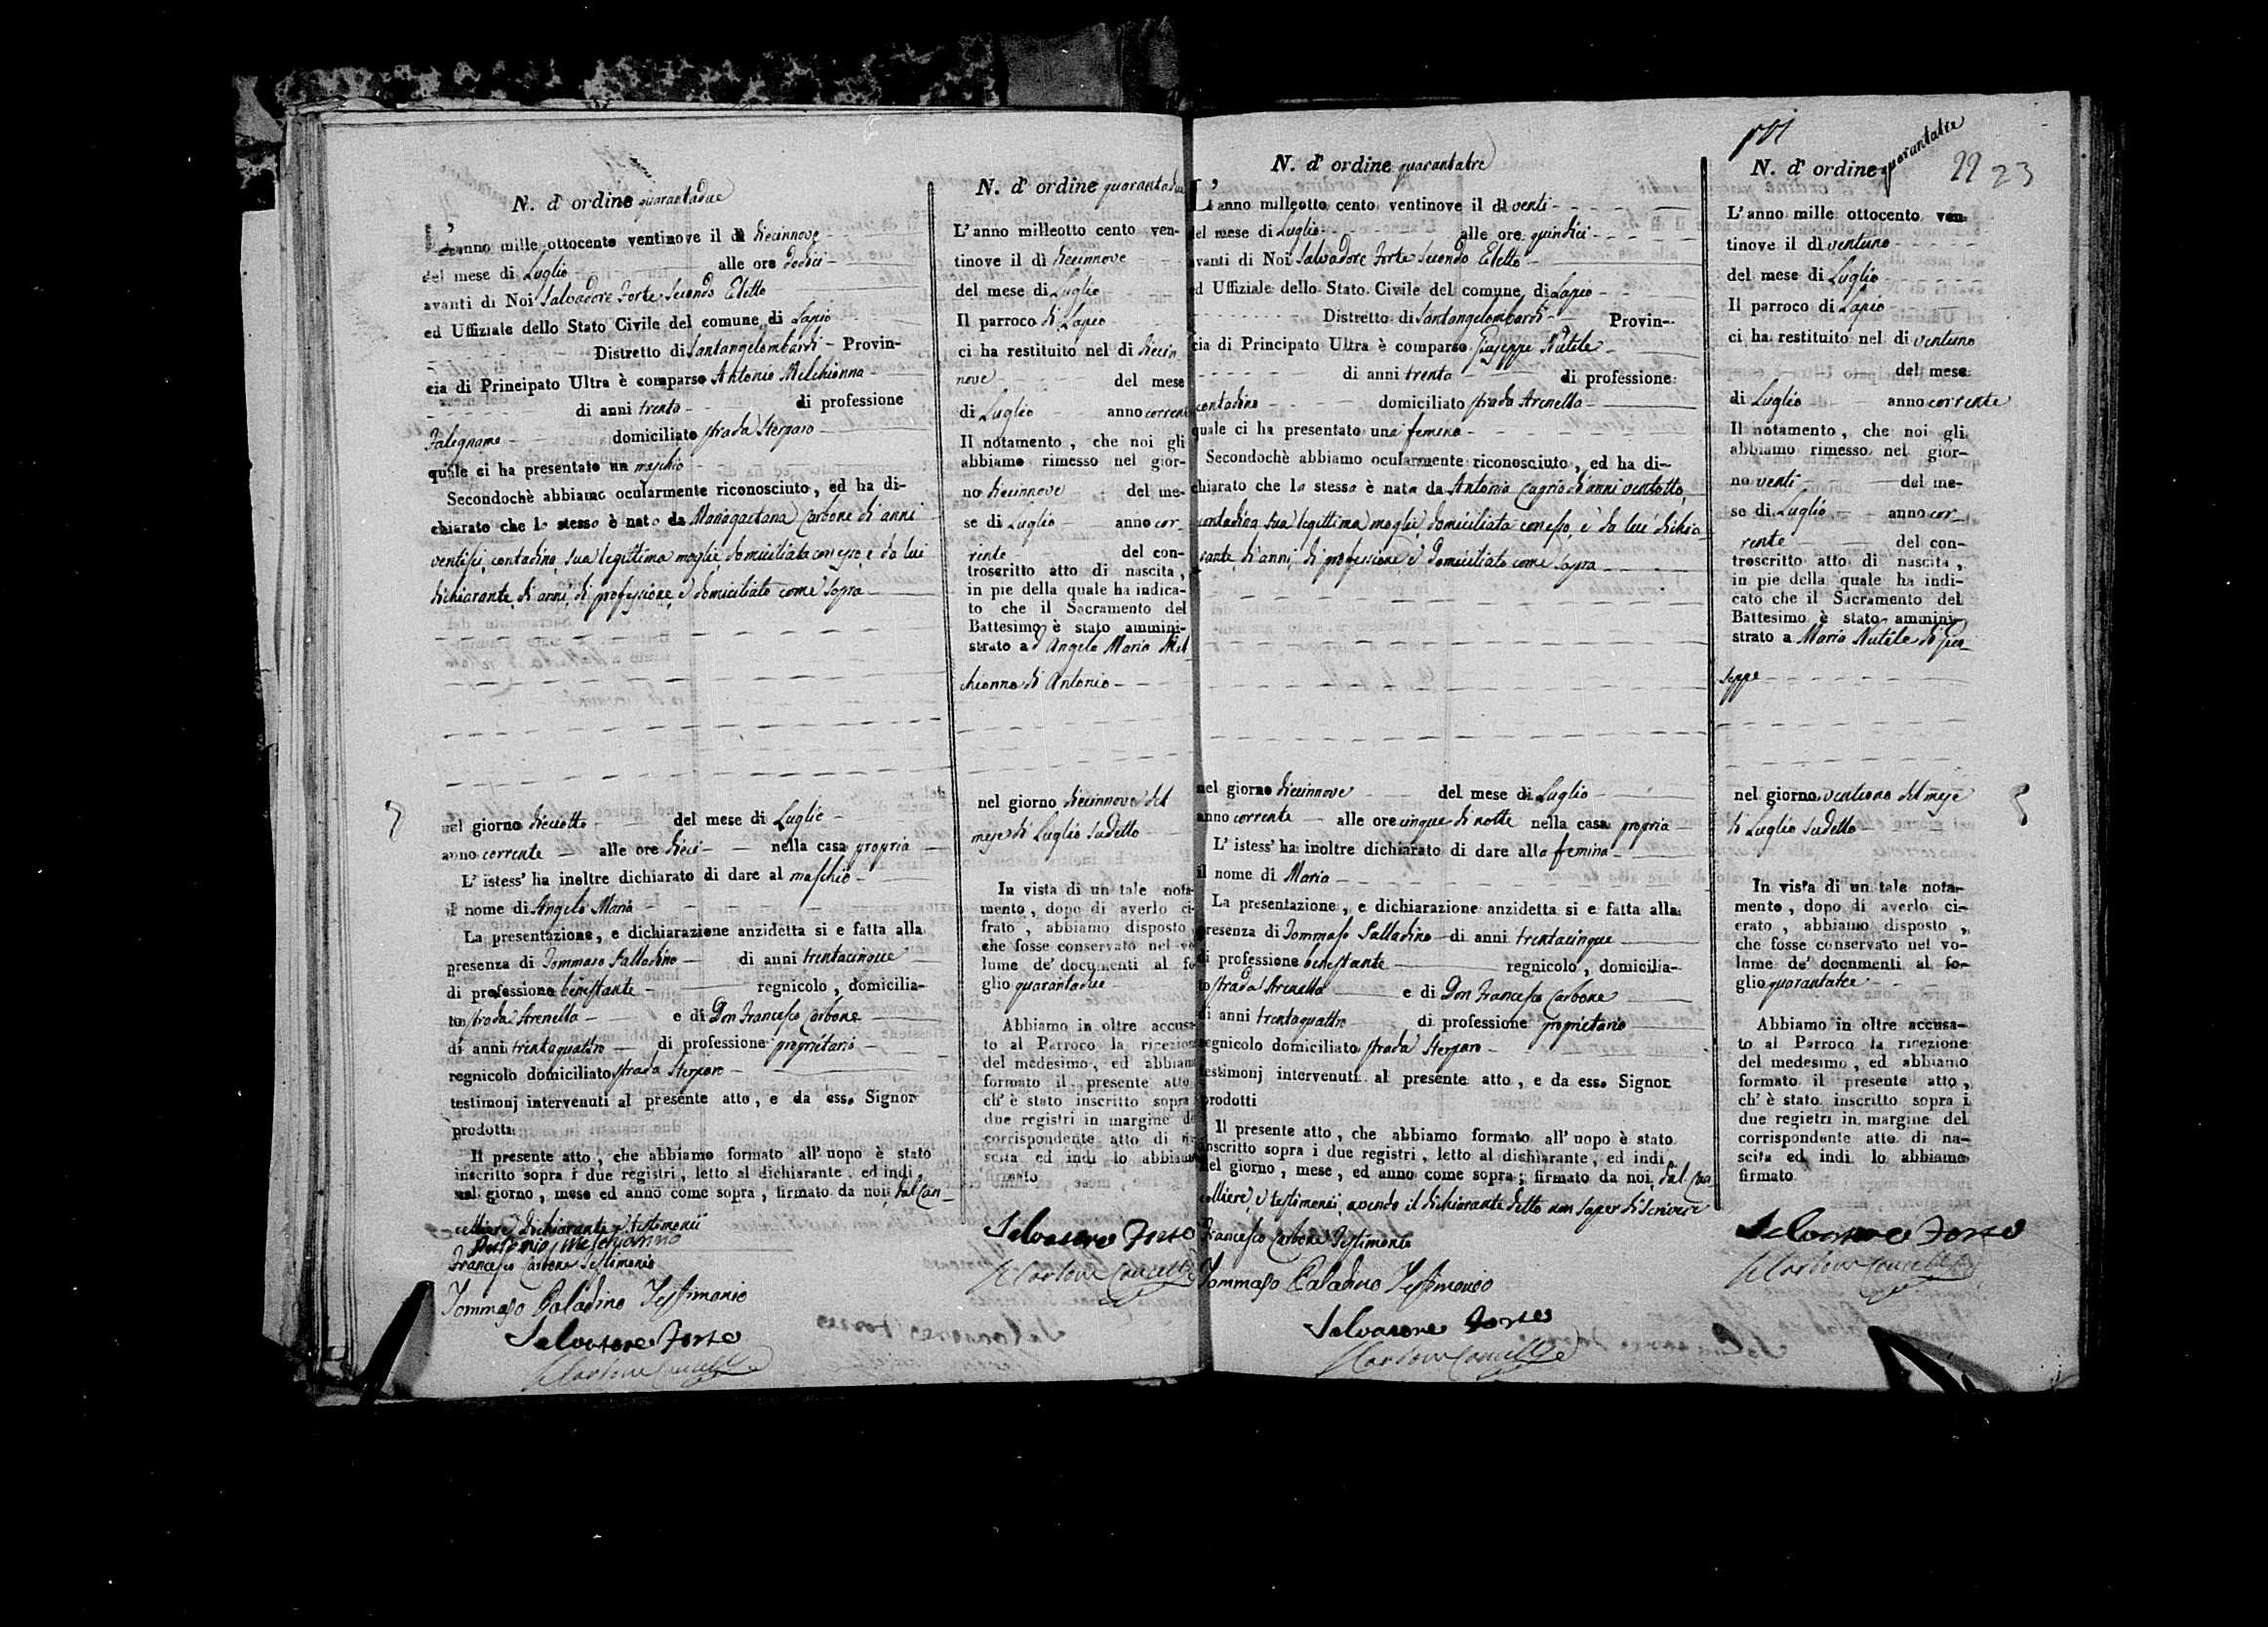 N. d' ordine quarantadue
L' anno mille ottocento ventinove il dì diecinnove
del mese di Luglio alle ore dodici
avanti di Noi Salvadore Forte Secondo Eletto
ed Uffiziale dello Stato Civile del comune di Lapio
Distretto di Santangelombardi Provin-
cia di Principato Ultra è comparso Antonio Melchionna
di anni trenta di professione
Falegname domiciliato strada Sterparo
quale ci ha presentato un maschio
Secondochè abbiamo ocularmente riconosciuto, ed ha di-
chiarato che lo stesso è nato da Mariagaetana Carbone di anni
ventisei, contadina, sua legittima moglie, domiciliata con esso, e da lui
dichiarante, di anni, di professione, e domiciliato come sopra
nel giorno dieciotto del mese di Luglio
anno corrente alle ore dieci nella casa propria
L' istess' ha inoltre dichiarato di dare al maschio
il nome di Angelo Maria
La presentazione, e dichiarazione anzidetta si e fatta alla
presenza di Tommaso Palladino di anni trentacinque
di professione benestante regnicolo, domicilia-
to strada Arenella e di Don Francesco Carbone
di anni trentaquattro di professione proprietario
regnicolo domiciliato strada Sterparo
testimonj intervenuti al presente atto, e da esso Signor
prodotti
Il presente atto, che abbiamo formato all' uopo è stato
inscritto sopra i due registri, letto al dichiarante, ed indi
nel giorno, mese ed anno come sopra, firmato da noi, dal Can-
celliere, dichiarante, e testimonii
Antonio Melchionno
Francesco Carbone Testimonio
Tommaso Paladino Testimonio
Salvatore Forte
N. d' ordine quarantadue
L' anno milleotto cento ven-
tinove il dì diecinnove
del mese di Luglio
Il parroco di Lapio
ci ha restituito nel di diecin
nove del mese
di Luglio anno corrente
Il notamento, che noi gli
abbiamo rimesso nel gior-
no diecinnove del me-
se di Luglio anno cor-
rente del con-
troscritto atto di nascita,
in pie della quale ha indica-
to che il Sacramento del
Battesimo è stato ammini-
strato ad Angelo Maria Mel-
chionna di Antonio
nel giorno diecinnove del
mese di Luglio sudetto
In vista di un tale nota-
mento, dopo di averlo ci-
frato, abbiamo disposto,
che fosse conservato nel vo-
lume de' documenti al fo-
glio quarantadue
Abbiamo in oltre accusa-
to al Parroco la ricezione
del medesimo, ed abbiamo
formato il presente atto,
ch' è stato inscritto sopra i
due registri in margine del
corrispondente atto di na-
scita ed indi lo abbiamo
firmato
Salvatore Forte
N. d' ordine quarantatre
L' anno milleotto cento ventinove il dì venti
del mese di Luglio alle ore quindici
avanti di Noi Salvadore Forte Secondo Eletto
ed Uffiziale dello Stato Civile del comune di Lapio
Distretto di Santangelombardi Provin-
cia di Principato Ultra è comparso Giuseppe Nutile
di anni trenta di professione
contadino domiciliato strada Arenella
quale ci ha presentato una femina
Secondochè abbiamo ocularmente riconosciuto, ed ha di-
chiarato che la stessa è nata da Antonia di anni ventotto,
contadina sua legittima moglie, domiciliata con esso, e da lui dichia-
rante di anni, di professione, e domiciliato come sopra
nel giorno diecinnove del mese di Luglio
anno corrente alle ore cinque di notte nella casa propria
L' istess' ha inoltre dichiarato di dare alla femina
il nome di Maria
La presentazione, e dichiarazione anzidetta si e fatta alla
presenza di Tommaso Palladino di anni trentacinque
di professione benestante regnicolo, domicilia-
to strada Arenella e di Don Francesco Carbone
di anni trentaquattro di professione proprietario
regnicolo domiciliato strada Sterparo
testimonj intervenuti al presente atto, e da esso Signor
prodotti
Il presente atto, che abbiamo formato all' uopo è stato
inscritto sopra i due registri, letto al dichiarante, ed indi
nel giorno, mese, ed anno come sopra; firmato da noi, dal Can
celliere, e testimonii, avendo il dichiarante detto non saper di scrivere
Francesco Carbone Testimonio
Tommaso Paladino Testimonio
Salvatore Forte
N. d' ordine quarantatre
22 23
L' anno mille ottocento ven-
tinove il dì ventuno
del mese di Luglio
Il parroco di Lapio
ci ha restituito nel di ventuno
del mese
di Luglio anno corrente
Il notamento, che noi gli
abbiamo rimesso nel gior-
no venti del me-
se di Luglio anno cor-
rente del con-
troscritto atto di nascita,
in pie della quale ha indi-
cato che il Sacramento del
Battesimo è stato ammini-
strato a Maria Nutile di Giu-
seppe
nel giorno ventuno del mese
di Luglio sudetto
In vista di un tale nota-
mento, dopo di averlo ci-
erato, abbiamo disposto,
che fosse conservato nel vo-
lume de' documenti al fo-
glio quarantatre
Abbiamo in oltre accusa-
to al Parroco la ricezione
del medesimo, ed abbiamo
formato il presente atto,
ch' è stato inscritto sopra i
due registri in margine del
corrispondente atto di na-
scita ed indi lo abbiamo
firmato
Salvatore Forte